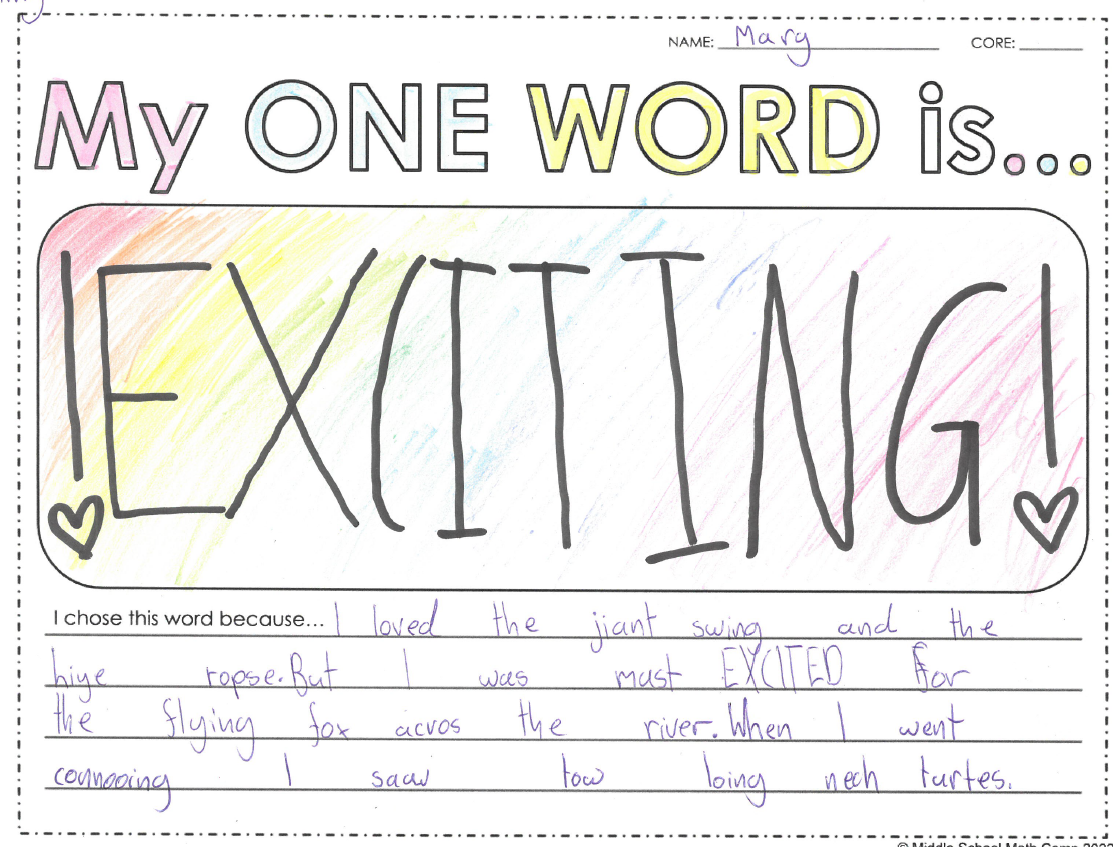 NAME: Mary CORE:
My ONE WORD is...
!EXCITING!
I chose this word because... I loved the jiant swing and the
hiye ropse. But I was must EXCITED for
the flying fox acros the river. When I went
counooing I saaw tow loing nech turtes.
© Middle School Math Camp 2022